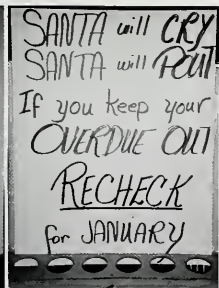 SANTA will CRY
SANTA will POUT
If you keep your
OVERDUE OUT
RECHECK
for JANUARY